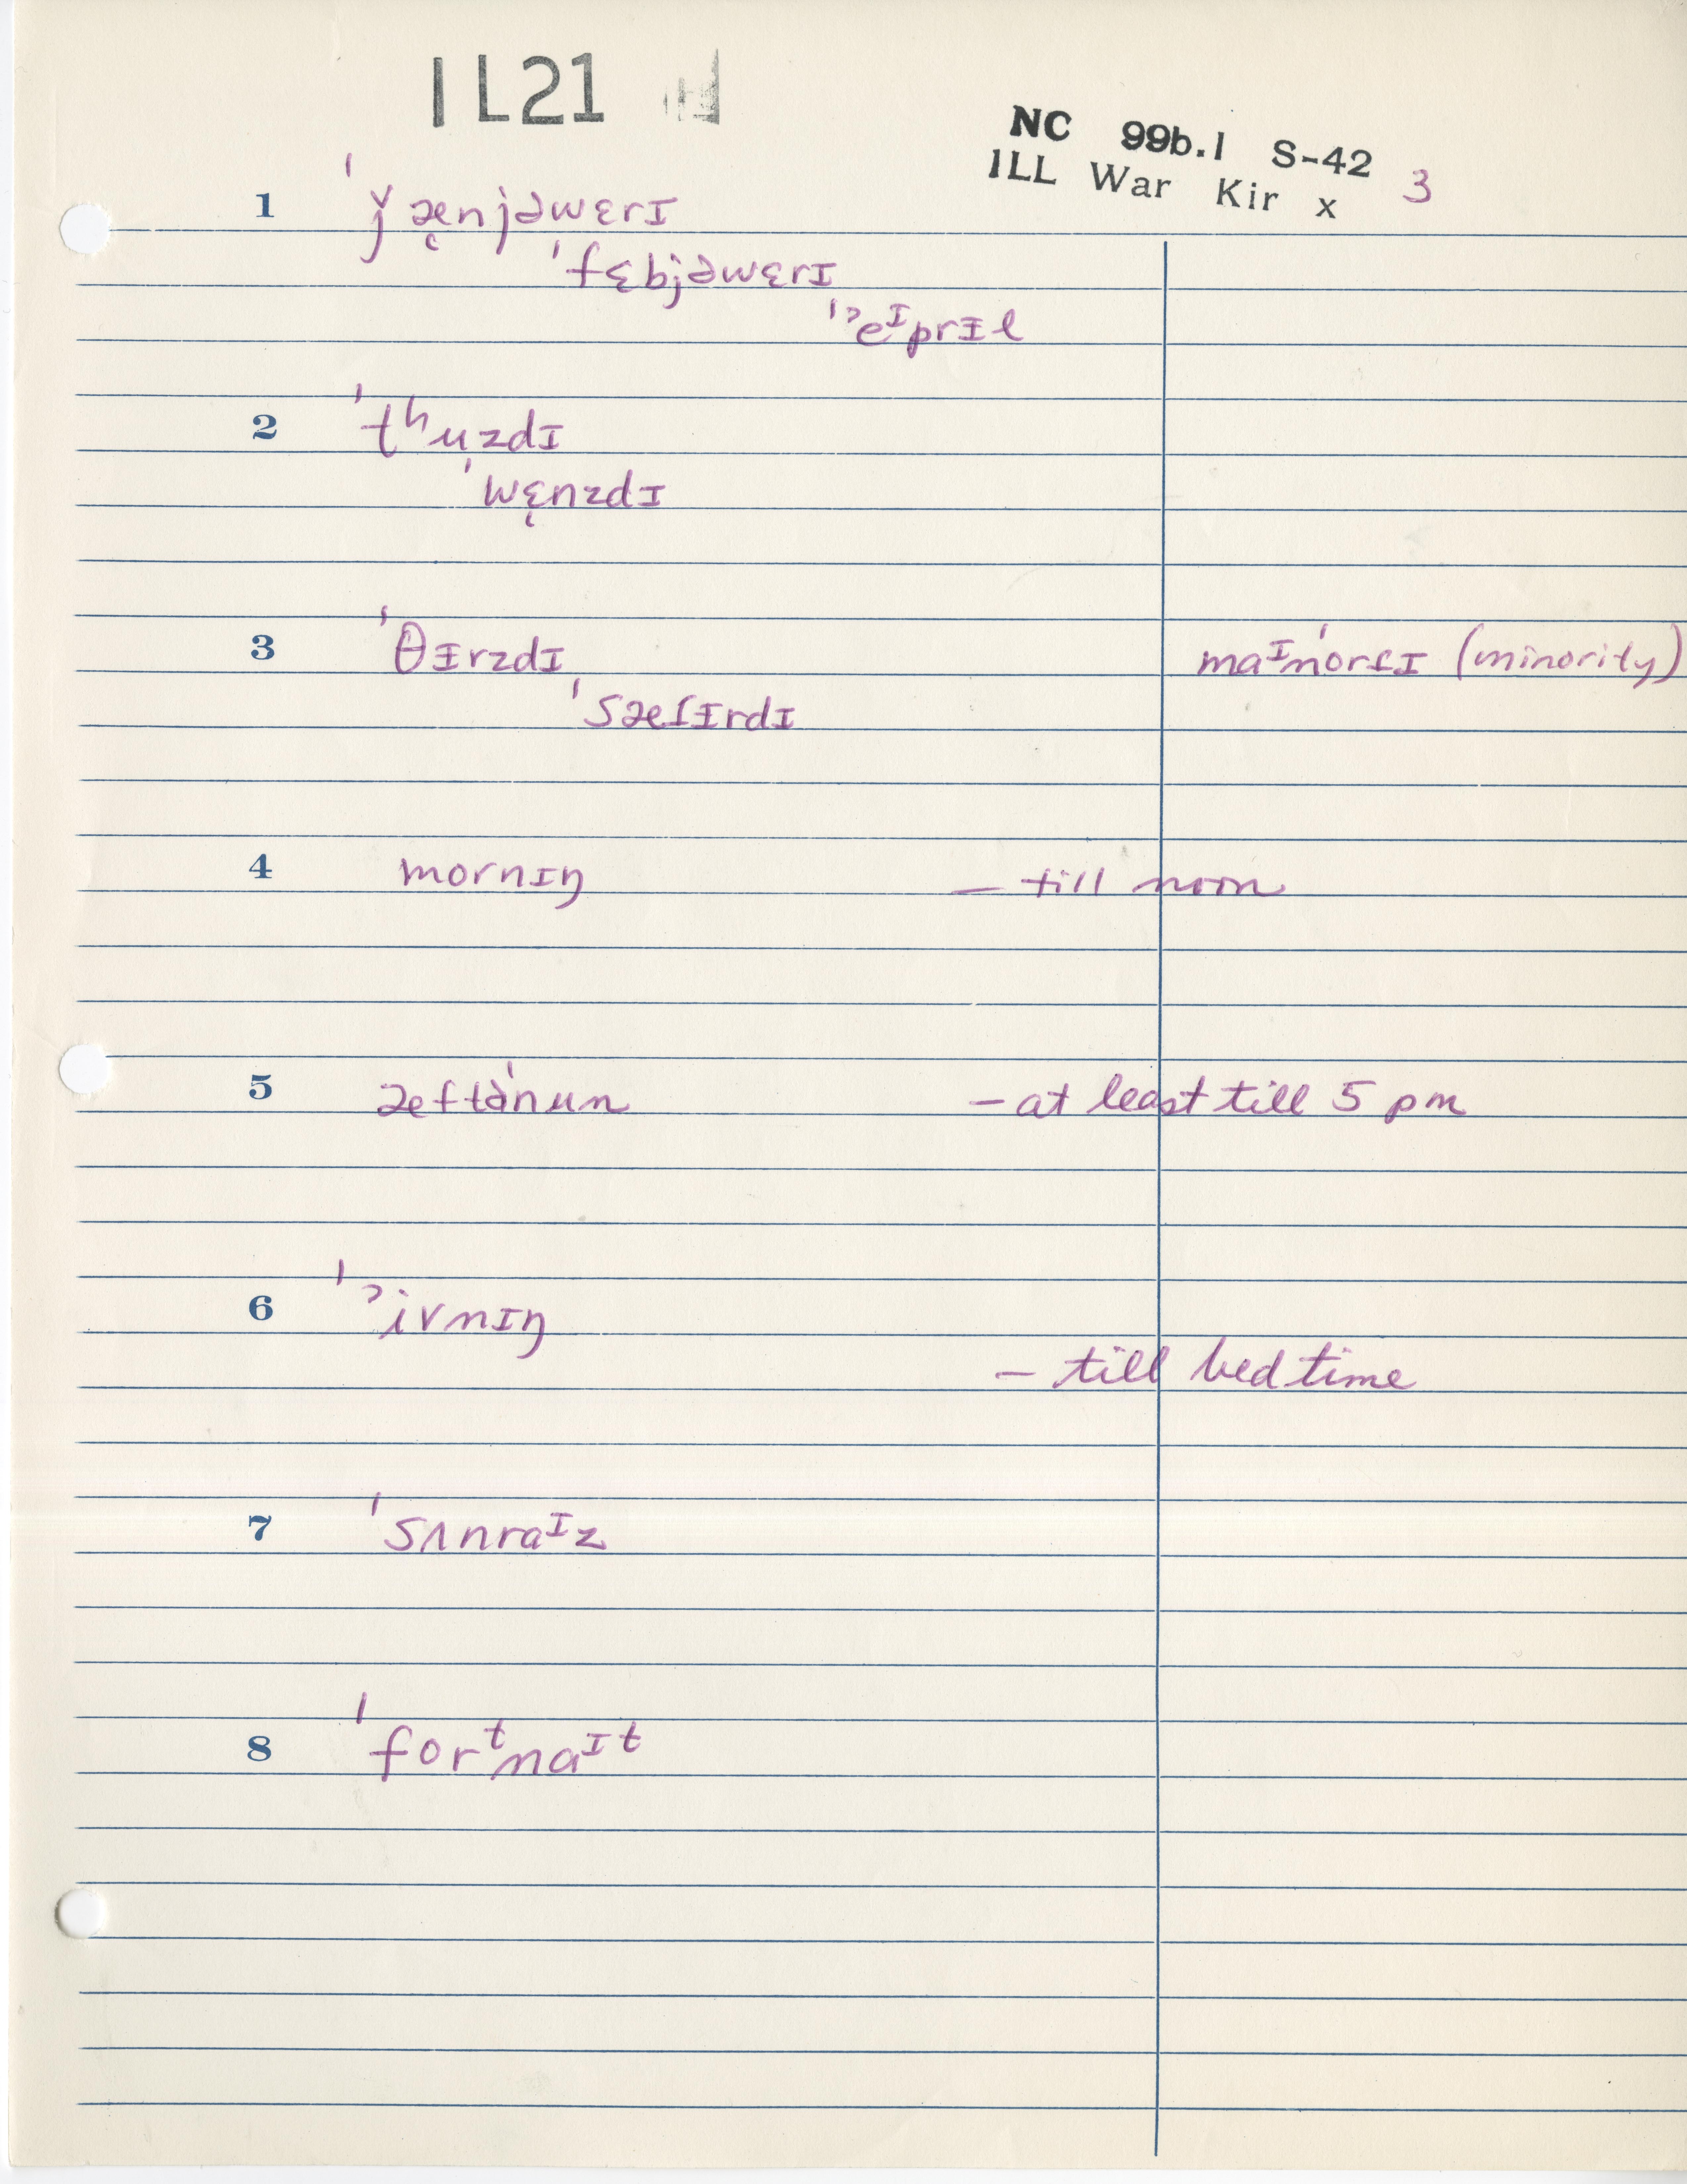 IL21 H
NC 99b.1 S-42 3
ILL War Kir x
1 ˈǰæ̨njəwɛrɪ
ˈfɛbjəwɛrɪ
ˈˀeᴵprɪl
2 ˈtʰu̢zdɪ
ˈwɛ̨nzdɪ
3 ˈθɪrzdɪ maᴵˈnorɾɪ (minority)
ˈsæɾɪrdɪ
4 mornɪŋ – till noon
5 æftəˈnun – at least till 5 pm
6 ˈˀivnɪŋ
– till bedtime
7 ˈsʌnraᴵz
8 ˈforᵗnaᴵt